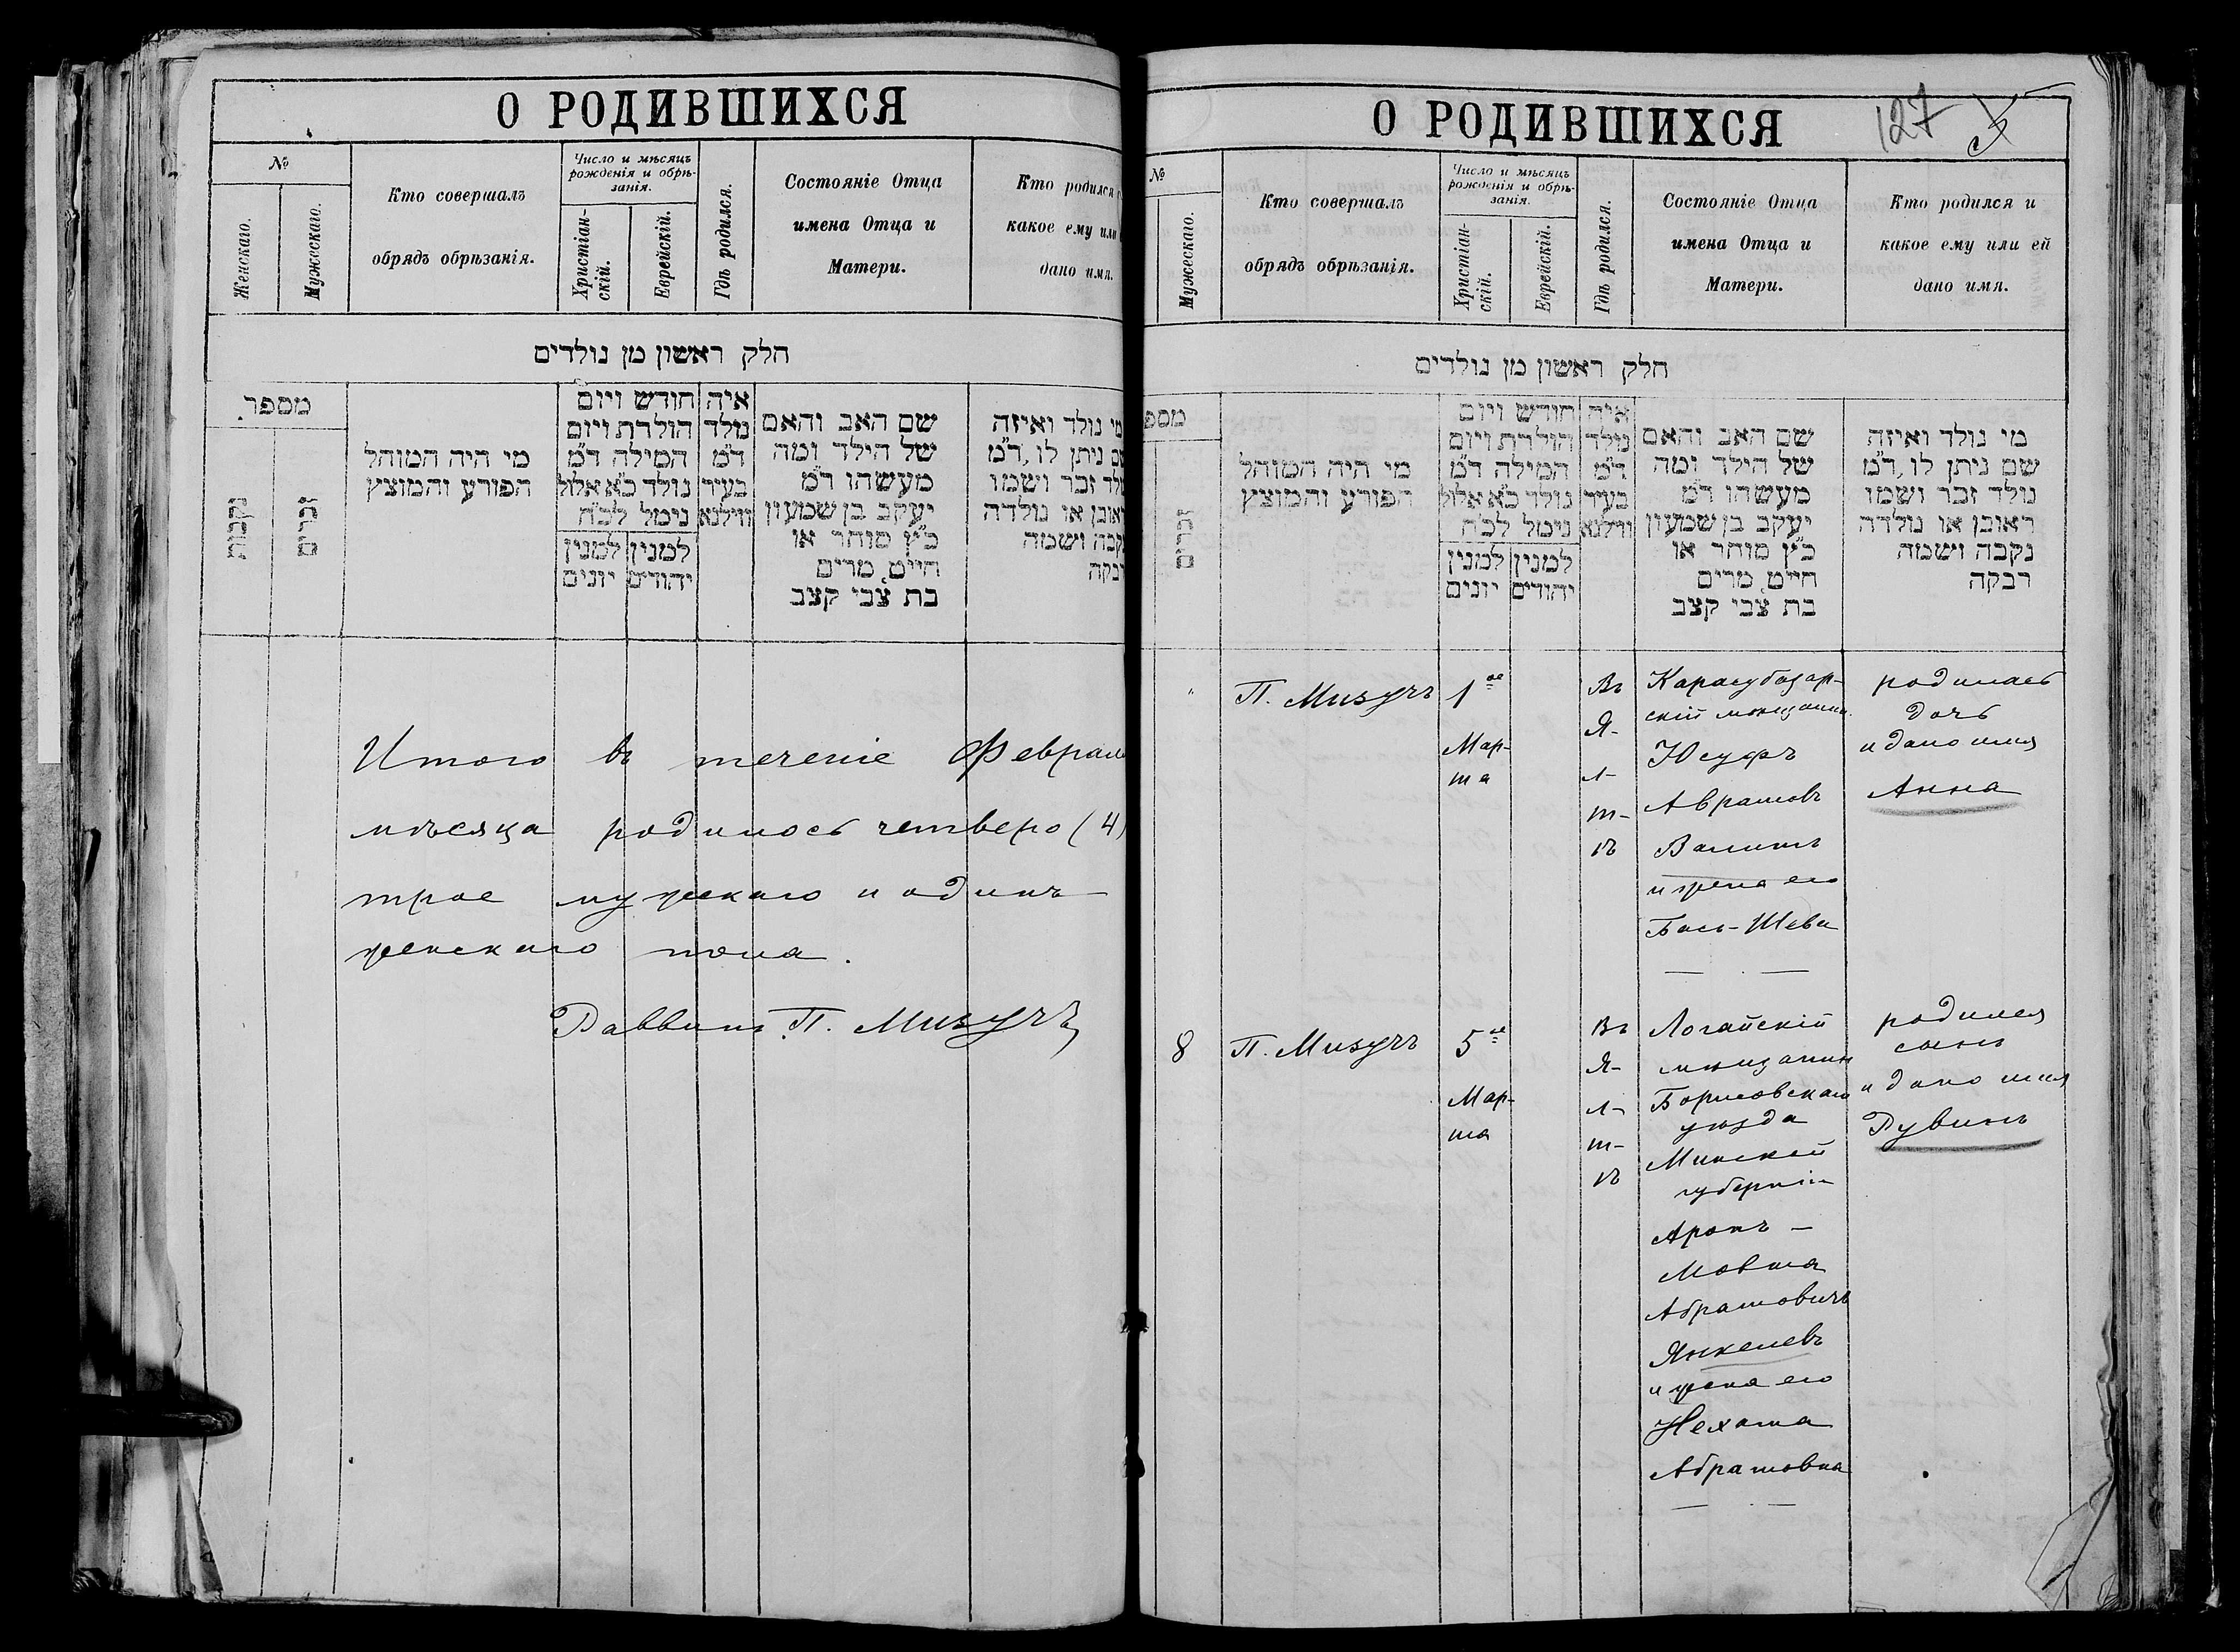 О РОДИВШИХСЯ
№
Женскаго.
Мужескаго.
Кто совершалъ
обрядъ обрѣзанія.
Число и мѣсяцъ
рожденія и обрѣ-
занія.
Христіан-
скій.
Еврейскій.
Гдѣ родился.
Состояніе Отца
имена Отца и
Матери.
Кто родился
какое ему или
дано имя.
חלק ראשון מן נולדים
מספר
נקבות
זכרים
מי היה המוהל
הפורע והמוצץ
חודש ויום
הולדת ויום
המילה ד"מ
נולד כ"א אלול
נימל לכ"ח
למנין
יהודים
למנין
יונים
איה
נולד
ד"מ
בעיר
ווילנא
שם האב והאם
של הילד ומה
מעשהו ד"מ
יעקב בן שמעון
כ"ץ סוחר או
חייט, מרים
בת צבי קצב
מי נולד ואיזה
שם ניתן לו, ד"מ
נולד זכר ושמו
ראובן או נולדה
נקבה ושמה
Итого въ теченіе Феврал
мѣсяца родилось четверо (4)
трое мужескаго и одинъ
женскаго пола.
Раввинъ П. Мизучъ
О РОДИВШИХСЯ
127
5
№
Мужескаго.
Кто совершалъ
обрядъ обрѣзанія.
Число и мѣсяцъ
рожденія и обрѣ-
занія.
Христіан-
скій.
Еврейскій.
Гдѣ родился.
Состояніе Отца
имена Отца и
Матери.
Кто родился и
какое ему или ей
дано имя.
חלק ראשון מן נולדים
מספ
זכרים
מי היה המוהל
הפורע והמוצץ
חודש ויום
הולדת ויום
המילה ד"מ
נולד כ"א אלול
נימל לכ"ח
למנין
יהודים
למנין
יונים
איה
נולד
ד"מ
בעיר
ווילנא
שם האב והאם
של הילד ומה
מעשהו ד"מ
יעקב בן שמעון
כ"ץ סוחר או
חייט, מרים
בת צבי קצב
מי נולד ואיזה
שם ניתן לו, ד"מ
נולד זכר ושמו
ראובן או נולדה
נקבה ושמה
רבקה
"
П. Мизучъ
1ое
Мар-
та
Въ
Я-
л-
т-
ѣ
Карасубазар-
скій мѣщанинъ
Юсуфъ
Аврамовъ
Валитъ
и жена его
Бась-Шева
родилась
дочь
и дано имя
Анна
8
П. Мизучъ
5ое
Мар-
та
Въ
Я-
л-
т-
ѣ
Логайскій
мѣщанинъ
Борисовскаго
уѣзда
Минской
губерніи
Аронъ-
Мовша
Абрамовичъ
Янкелевъ
и жена его
Нехама
Абрамовна
родился
сынъ
и дано имя
Рувинъ